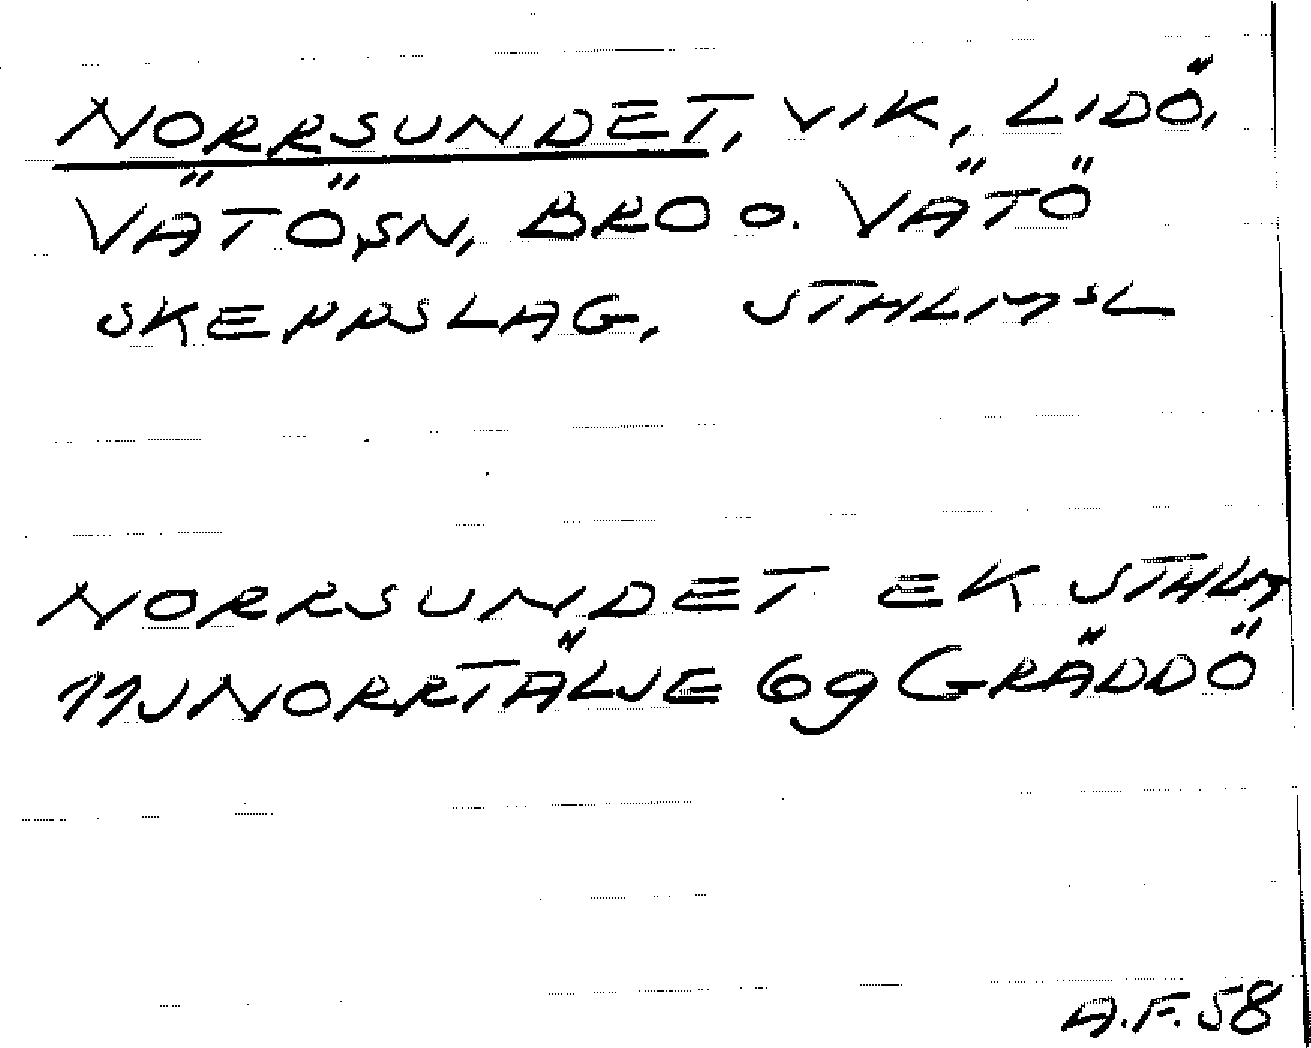 NORRSUNDET, VIK, LIDÖ,
VÄTÖ SN, BRO O. VÄTÖ
SKEPPSLAG, STHLMSL
NORRSUNDET EK STHLM
11J NORRTÄLJE 6g GRÄDDÖ
A.F. 58